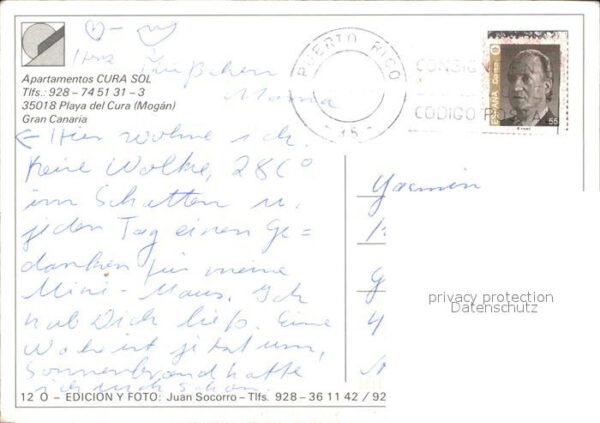 Herz Küßchen
Mama
Apartamentos CURA SOL
Tlfs.: 928 - 74 51 31 - 3
35018 Playa del Cura (Mogán)
Gran Canaria
← Hier wohne ich.
Keine Wolke, 28 C°
im Schatten u.
jeden Tag einen Ge=
danken für meine
Mini-Maus. Ich
hab Dich lieb. Eine
Woche ist jetzt um,
Sonnenbrand hatte
ich auch schon.
12 O - EDICION Y FOTO: Juan Socorro - Tlfs. 928 - 36 11 42 / 92
PUERTO RICO
CONSIG
CODIGO POSTA
ESPAÑA Correos
55
Yasmin
privacy protection
Datenschutz